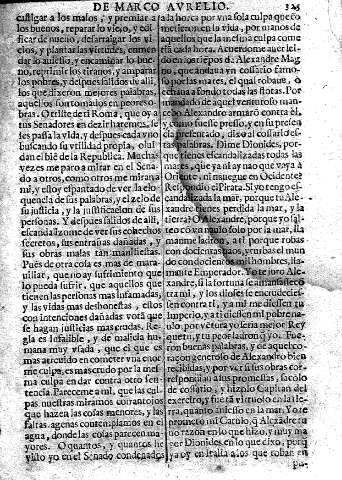 DE MARCO AVRELIO.
325
castigar a los malos, y premiar a
los buenos, reparar lo viejo, y edi
ficar de nuevo, desarraigar los vi-
cios, y plantar las virtudes, enmen
dar lo ausesso, y encaminar lo bue-
no, reprimir los tiranos, y amparar
los pobres, y despues salidos de alli,
los que dixeron mejores palabras,
aquellos son tomados en peores o-
bras. O triste de ti Roma, que oy a
tus Senadores en dezir haremos, se
les passa la vida, y despues cada vno
buscando su vtilidad propia, olui
dan el bié de la Republica. Muchas
vezes me paro a mirar en el Sena-
do a otros, como otros me miran a
mi, y estoy espantado de ver la elo-
quencia de sus palabras, y el zelo de
su justicia, y la justificacion de sus
personas. Y despues salidos de alli,
escandalizome de ver sus cohechos
secretos, sus entrañas dañadas, y
sus obras malas tan manifiestas.
Pues de otra cosa es mas de mara-
uillar, que no ay sufrimiento que
lo pueda sufrir, que aquellos que
tienen las personas mas infamadas,
y las vidas mas deshonestas, ellos
con intenciones dañadas votã que
se hagan justicias mas crudas. Re-
gla es infalible, y de malicia hu-
mana muy vsada, que el que es
mas atreuido en cometer vna enor
me culpa, es mas crudo por la mes-
ma culpa en dar contra otro sen-
tencia. Pareceme a mi, que las cul-
pas nuestras miramos con antojos
que hazen las cosas menores, y las
faltas agenas contemplamos en el
agua, donde las cosas parecen ma-
yores. O quantos, y quantos he
visto yo en el Senado condenados
a la horca por vna sola culpa que co
metieron en la vida, por manos de
aquellos que la mesma culpa come
tẽ cada hora. Acuerdome auer lei-
do en los tiempos de Alexandro Mag
no, que andaua vn cossario famo-
so por las mares, el qual robaua, o
echaua a fondo todas las flotas. Por
mandado de aquel venturoso man-
cebo Alexandro armarõ contra él,
y como fuesse presso, y en su presen
presentado, dixo al cossario es-
tas palabras. Dime Dionides, por-
que tienes escandalizadas todas las
mares, que ya ni ay nao que vaya a
Oriente, ni nauegue en Occidente?
Respondio el Pirata. Si yo tengo es-
candalizada la mar, porque tu Ale-
xandre tienes perdida la mar, y la
tierra? O Alexandre, porque yo sal-
teo cõ vna nao solo por la mar, lla
manme ladron, a ti porque robas
con docientas naos, y turbas el mun
do con docientos mil hombres, lla-
mante Emperador. Yo te juro Ale-
xandre, si la fortuna se amansasse cõ
tra mi, y los dioses se encrudecies-
sen contra ti, y a mi me diessen tu
Imperio, y a ti diessen mi pobre na-
uio, por vẽtura yo seria mejor Rey
que tu, y tu peor ladron q̃ yo. Fue-
ron buenas palabras, y de aquel co-
raçon generoso de Alexandro bien
recibidas, y por ver si sus obras cor-
respondian a sus promesas, sacolo
de cossario, y hizolo Capitan del
exercito, y fue tã virtuoso en la tier-
ra, quanto auiesso en la mar. Yo te
prometo mi Catulo, q̃ Alexãdre tu
uo razon en lo que hizo, y muy ma
yor Dionides en lo que dixo, porq̃
ya oy en Italia a los que roban en
pu-